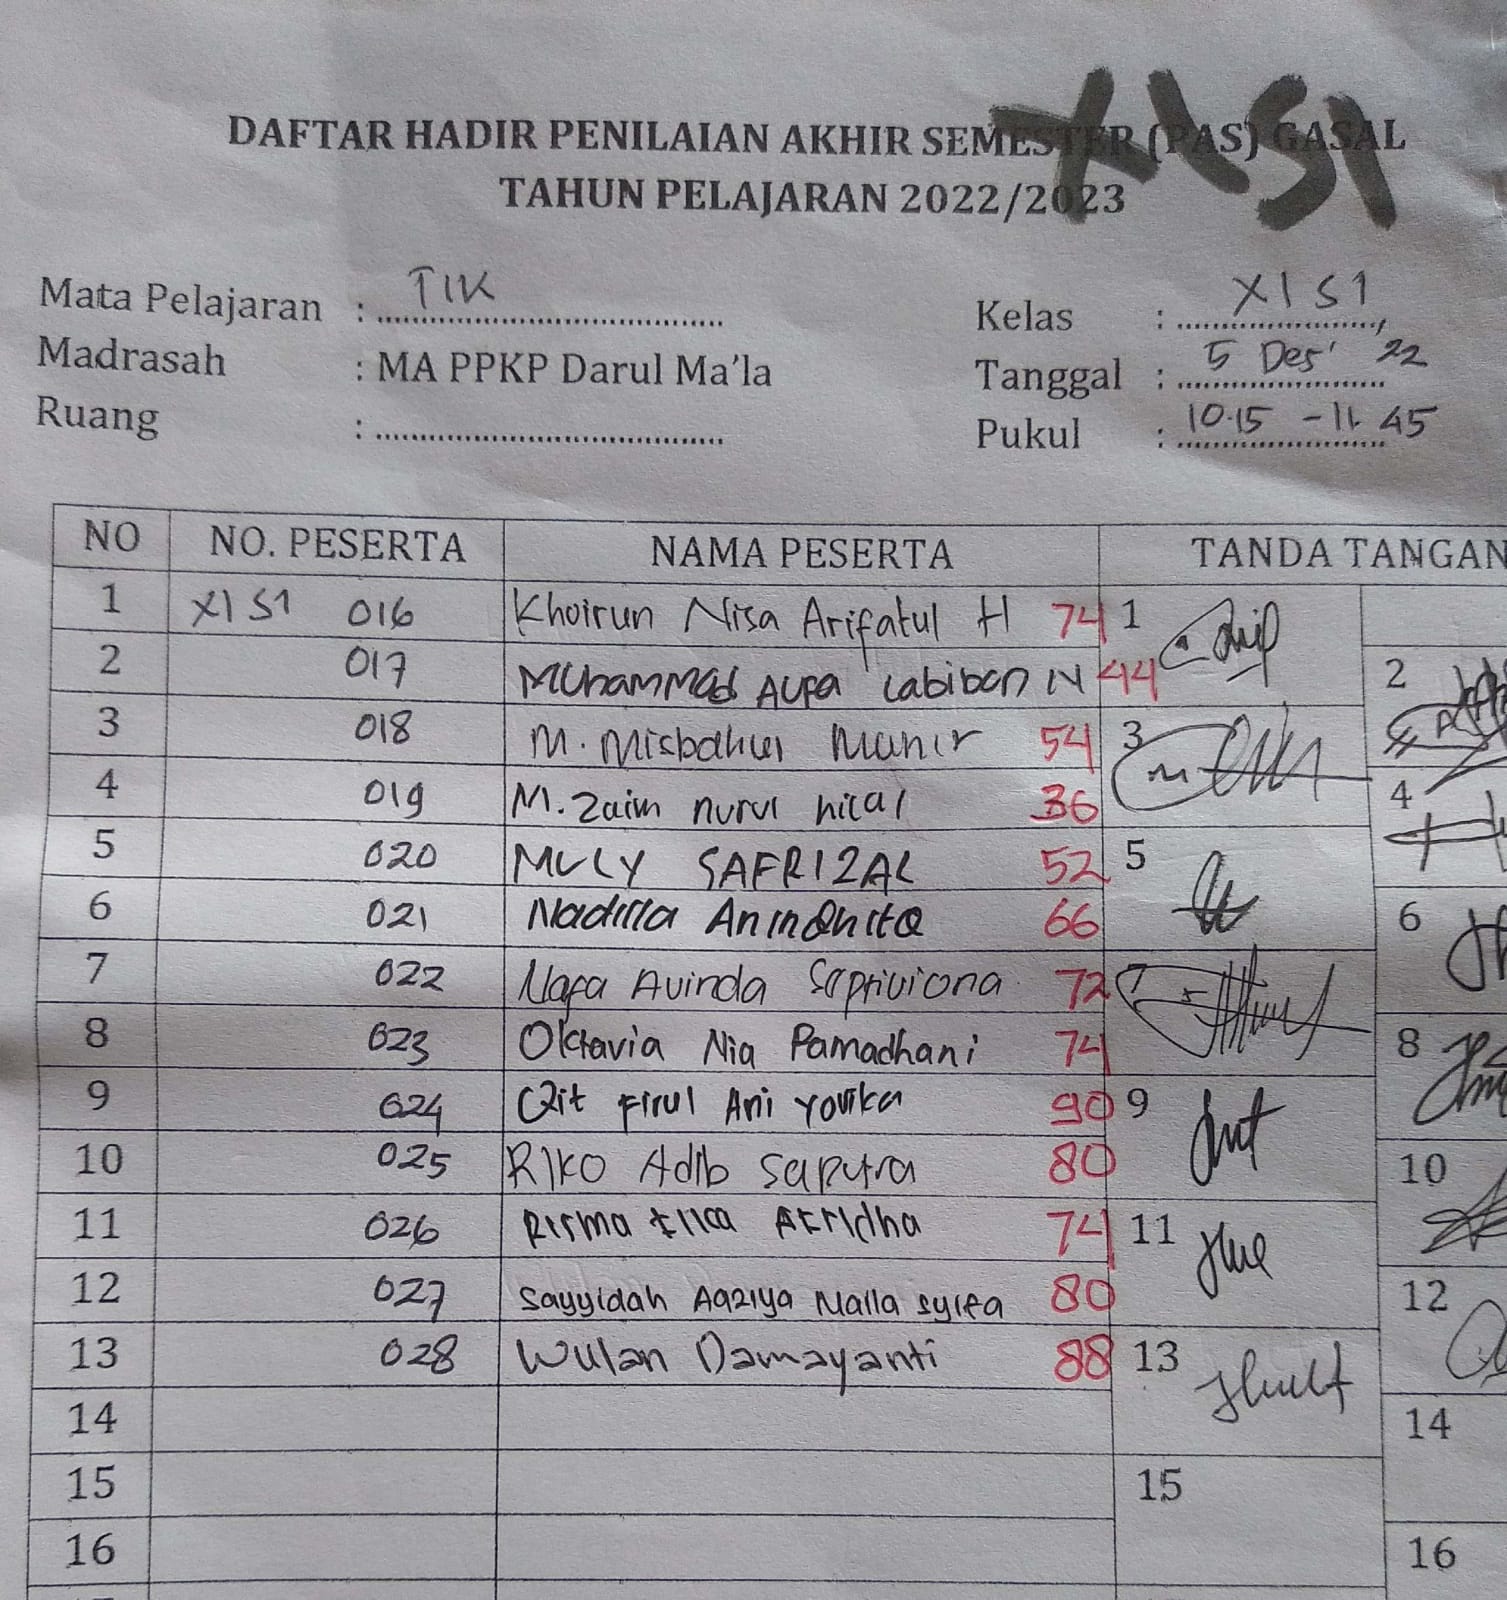 XI S1
DAFTAR HADIR PENILAIAN AKHIR SEMESTER (PAS) GASAL
TAHUN PELAJARAN 2022/2023
Mata Pelajaran : TIK Kelas : XI S1
Madrasah : MA PPKP Darul Ma'la Tanggal : 5 Des' 22
Ruang : Pukul : 10.15 - 11.45
NO NO. PESERTA NAMA PESERTA TANDA TANGAN
1 XI S1 016 Khoirun Nisa Arifatul H 74 1
2 017 Muhammad Aufa Labiban N 44 2
3 018 M. Misbahul Munir 54 3
4 019 M. Zaim nurul hilal 36 4
5 020 MULY SAFRIZAL 52 5
6 021 Nadilla Anindhita 66 6
7 022 Nafa Avinda Sapriviona 72 7
8 023 Oktavia Nia Ramadhani 74 8
9 024 Qit Firul Ani Yovika 90 9
10 025 RIKO Adib Saputra 80 10
11 026 Risma Afridha 74 11
12 027 Sayyidah Aaziya Naila Syifa 80 12
13 028 Wulan Damayanti 88 13
14 14
15 15
16 16